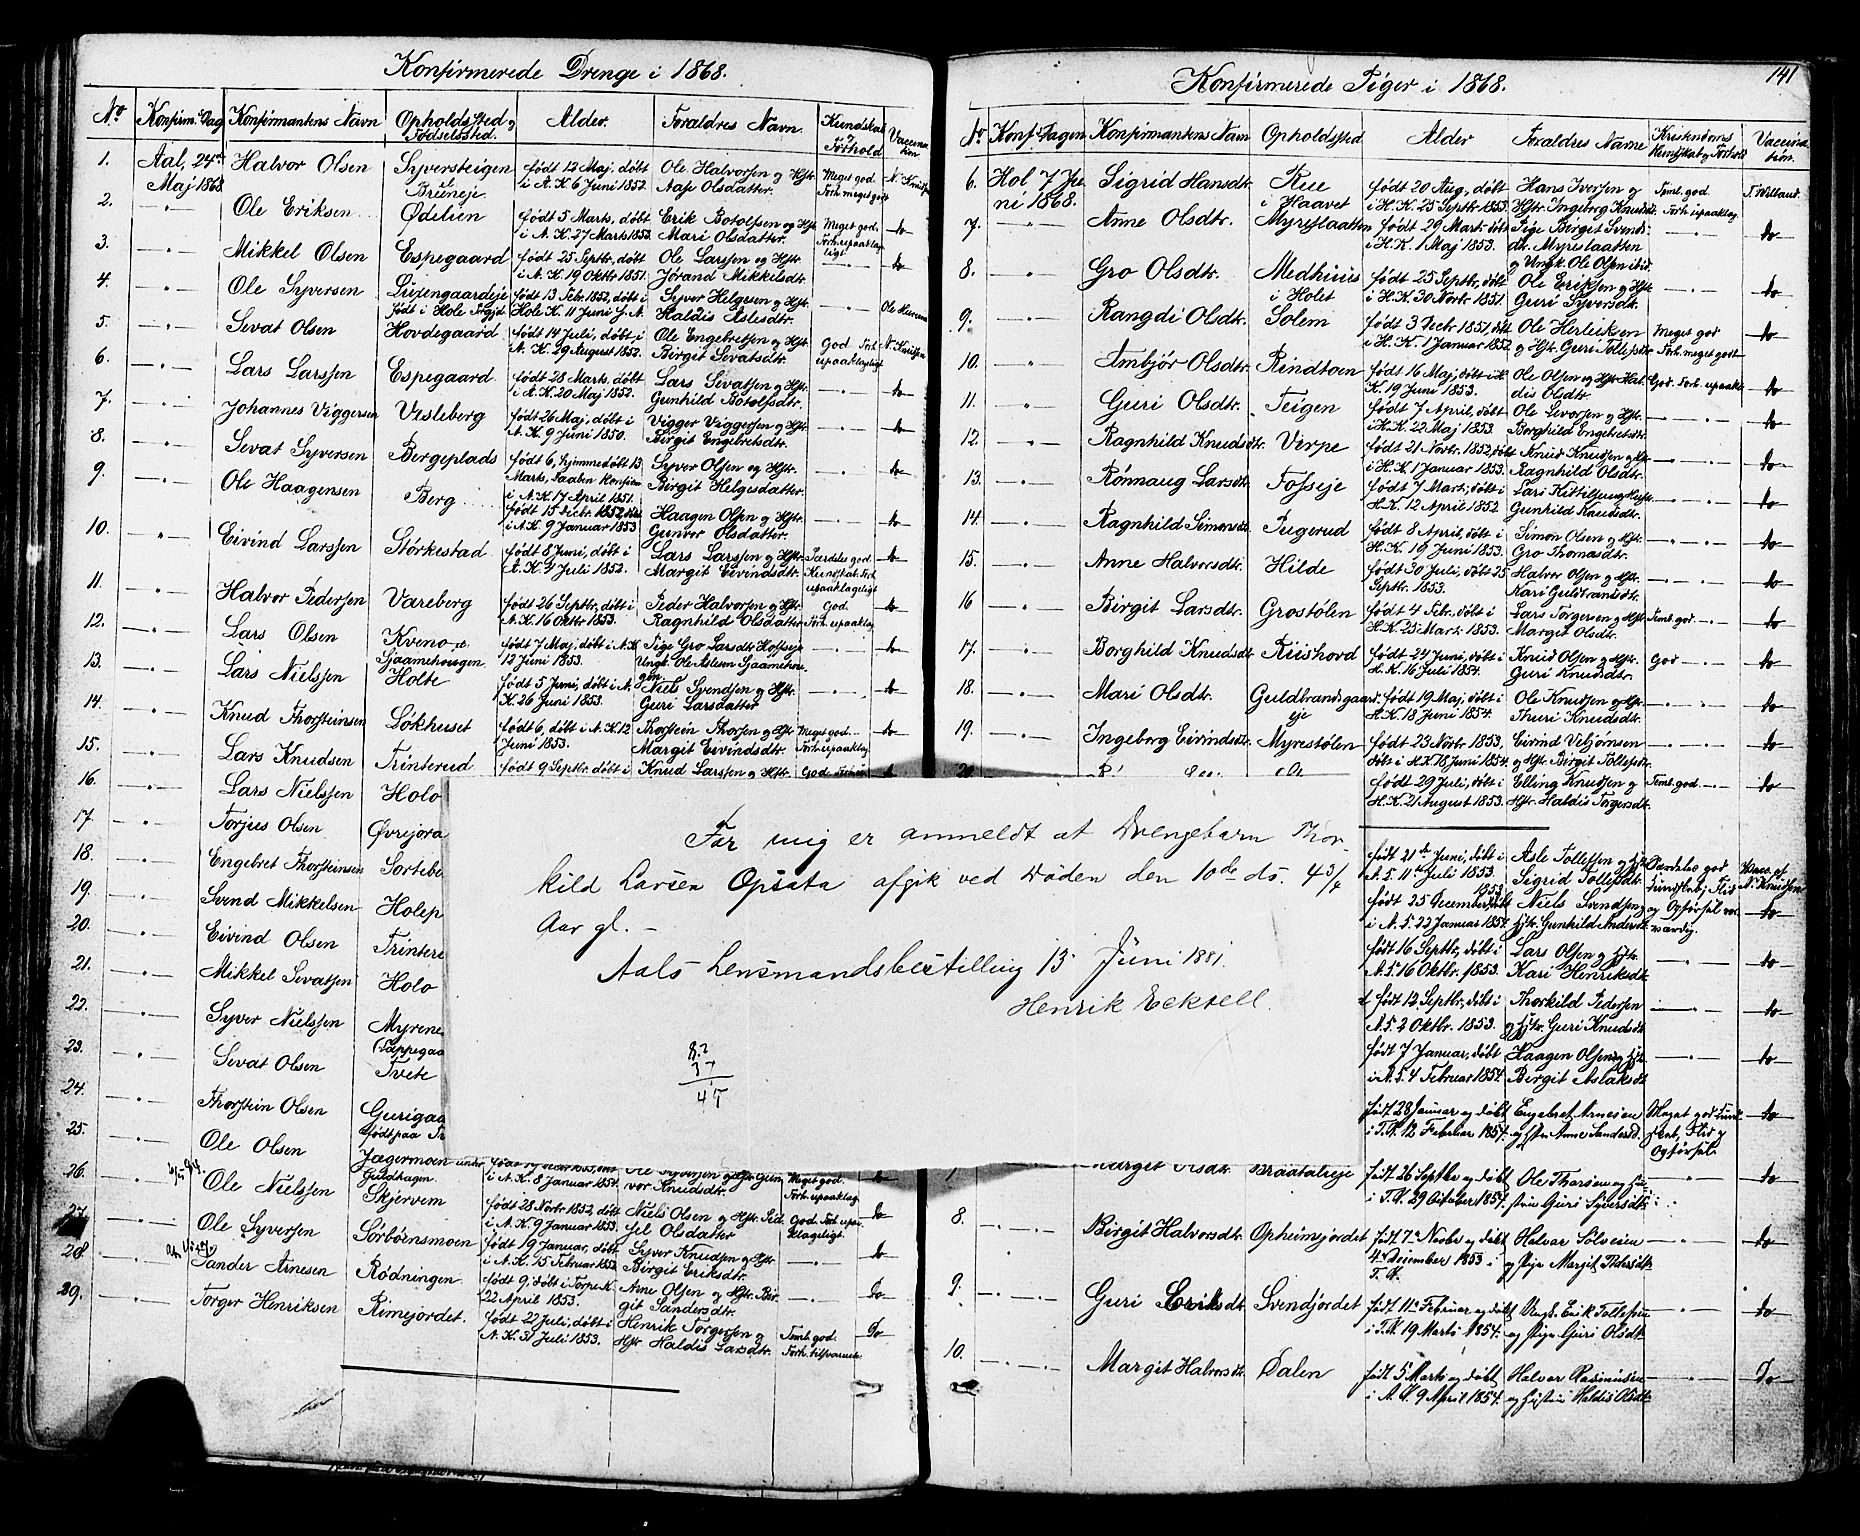 Konfirmerede Drenge i 1868.
No Konfirm. Dag Konfirmantens Navn Opholdssted og Fødselssted. Alder. Forældres Navn. Kundskab Forhold Vaccination
1. Aal, 24de Maj 1868. Halvor Olsen Syversteigen Bruneje født 12 Maj, døbt i A. K. 6 Juni 1852. Ole Halvorsen og Hstr. Aase Olsdatter. Meget god Forh. meget godt N. Knudsen
2. " Ole Eriksen Ødelien født 5 Marts, døbt i A. K. 27 Marts 1853. Erik Botolfsen og Hstr. Mari Olsdatter. Meget god. Forh. upaaklageligt do
3. " Mikkel Olsen Espegaard født 25 Septbr, døbt i A. K. 19 Oktbr 1851. Ole Larssen og Hstr. Jørand Mikkelsdtr. " do
4. " Ole Syversen født i Hole Prgjd født 13 Febr. 1852, døbt i Hole K. 11 Juni s. A. Syver Helgesen og Hstr. Haldis Aslesdtr. "
5. " Sevat Olsen Hovdegaard født 14 Juli, døbt i A. K. 29 August 1852. Ole Engebretsen og Hstr. Birgit Sevatsdtr. God Forh. upaaklageligt N. Knudsen
6. " Lars Larssen Espegaard født 28 Marts, døbt i A. K. 20 Maj 1852. Lars Sevatsen og Hstr. Gunhild Botolfsdtr. " do
7. " Johannes Viggersen Vesleberg født 26 Maj, døbt i A. K. 9 Juni 1850. Vigger Viggersen og Hstr. Birgit Engebretsdtr. " do
8. " Sevat Syversen Bergeplads født 6, hjemmedøbt 13 Marts, Daaben konfirm. i A. K. 17 April 1851. Syver Olsen og Hstr. Birgit Helgesdatter. " do
9. " Ole Haagensen Berg født 15 Decbr. 1852, døbt i A. K. 9 Januar 1853 Haagen Olsen og Hstr. Gunvor Olsdatter. " do
10. " Eivind Larssen Størkestad født 8 Juni, døbt i A. K. 4 Juli 1852. Lars Larssen og Hstr. Margit Eivindsdtr. Særdeles god Kundskab. Forh. upaaklageligt do
11. " Halvor Pedersen Vareberg født 26 Septbr, døbt i A. K. 16 Oktbr 1853. Peder Halvorsen og Hstr. Ragnhild Olsdatter God. Forh. upaaklag. do
12. " Lars Olsen Kveno-e. Sjaamehougen født 7 Maj, døbt i A. K 12 Juni 1853. Pige Gro Larsdtr Hoffseje Ungk. Ole Aslesen Sjaamehougen " do
13. " Lars Nielssen Holte født 5 Juni, døbt i A. K. 26 Juni 1853. Niels Svendsen og Hstr. Guri Larsdatter " do
14. " Knud Thorsteinsen Løkhuset født 6, døbt i A. K. 12 Juni 1853. Thorstein Thorsen og Hstr Margit Eivindsdtr. Meget god Forh. upaaklag do
15. " Lars Knudsen Trinterud født 9 Septbr. døbt i Knud Larssen og Hstr. God. Forh. do
16. " Lars Nielssen Holo
17. " Torjus Olsen Øvrejora
18. " Engebret Thorsteinsen Sortebe
19. " Svend Mikkelsen Holep
20. " Eivind Olsen Trintere
21. " Mikkel Sevatsen Holo
22. " Syver Nielssen Myrene
23. " Sevat Olsen Tvete
24. " Thorstein Olsen Gurigaa
25. " Ole Olsen Jægermoen under Guldhagen i A. K. 8 Januar 1854. vor Knudsdtr. Meget god. Forh. upaaklag do
26. " Ole Nielssen Skjervem født 28 Novbr 1852, døbt i A. K. 9 Januar 1853. Niels Olsen og Hstr. Sidsel Olsdatter God Forh. upaaklageligt. Do
27. " Ole Syversen Sørbørnsmoen født 19 Januar, døbt i A. K. 15 Februar 1852 Syver Knudsen og Hstr. Birgit Eriksdtr. " Do
28. " Sander Arnesen Rødningen født 9, døbt i Torpe K. 22 April 1853. Arne Olsen og Hstr. Birgit Sandersdtr. " Do
29. " Torger Henriksen Rimejordet. født 22 Juli, døbt i A. K. 31 Juli 1853. Henrik Torgersen og Hstr. Haldis Larsdtr. Temt. god. Forh. tilfvarende Do
Konfirmerede Piger i 1868.
141
No. Konf. Dagen Konfirmantens Navn Opholdssted Alder Forældres Navne Kristendoms Kundskab og Forhold Vaccination.
6. Hol 7 Juni 1868. Sigrid Hansdtr. Rue i Haavet født 20 Aug., døbt i H. K. 25 Septbr 1853. Hans Iversen og Hstr. Ingeborg Knudsdtr. Temt. god. Forh. upaaklag. T. Willand
7. " Anne Olsdtr. Myreslaatten født 29 Mart. døbt i H. K. 1 Maj 1853. Pige Birgit Svendsdtr. Myreslaatten og Ungk. Ole Olsen ibid. " do
8. " Gro Olsdtr. Medhuus i Holet født 25 Septbr, døbt i H. K. 30 Novbr 1851. Ole Eriksen og Hstr Guri Syversdtr. " do
9. " Rangdi Olsdtr. Solem født 3 Decbr 1851, døbt i H. K. 1 Januar 1852 Ole Herleiksen og Hstr. Guri Tollefsdtr. Meget god Forh. meget godt do
10. " Ambjør Olsdtr. Rindtoen født 16 Maj, døbt i H. K. 19 Juni 1853. Ole Olsen og Hstr Haldis Olsdtr God. Forh. upaakl. do
11. " Guri Olsdtr. Teigen født 7 April, døbt i H. K. 22 Maj 1853. Ole Sevorsen og Hstr. Borghild Engebretsdtr. " do
12. " Ragnhild Knudsdtr. Verpe født 21 Novbr. 1852, døbt i H. K. 1 Januar 1853. Knud Knudsen og Hstr. Ragnhild Olsdtr. " do
13. " Rønnaug Larsdtr. Fosseje født 7 Mart., døbt i H. K. 12 April 1852 Lars Kittilsen og Hstr. Gunhild Knudsdtr. " do
14. " Ragnhild Simonsdtr. Pugerud født 8 April, døbt i H. K. 19 Juni 1853. Simon Olsen og Hstr. Gro Thomasdtr. " do
15. " Anne Halvorsdtr. Hilde født 30 Juli, døbt 25 Septbr. 1853. Halvor Olsen og Hstr. Kari Guldbrandsdtr. " do
16 " Birgit Larsdtr. Grostølen født 4 Febr. døbt i H. K. 25 Mart. 1853. Lars Torgersen og Hstr Margit Olsdtr. Temt. god. do
17. " Borghild Knudsdtr. Riishovd født 24 Juni, døbt i H. K. 16 Juli 1854. Knud Olsen og Hstr. Guri Knudsdtr. God do
18. " Mari Olsdtr. Guldbrandsgaardseje født 19 Maj, døbt i H. K. 18 Juni 1854. Ole Knudsen og Hstr. Thuri Knudsdtr. " do
19. " Ingeborg Eivindsdtr. Myrestølen født 23 Novbr 1853, døbt i H. K. 18 Juni 1854. Eivind Veljømsen og Hstr Birgit Tollefsdtr. " do
20. født 29 Juli, døbt i H. K. 21 August 1853. Elling Knudsen og Hstr. Haldis Torgersdtr. Temt. god. do
født 21de Juni, døbt i A. K. 11te Juli 1853. Asle Tollefsen og Hstr. Sigrid Tollefsdtr. Særdeles god Kundskab, Flid og Opførsel N. Knudsen
født 25 December 1853, døbt i A. K. 22 Januar 1854 Niels Svendsen og Hstr. Gunhild Andersdtr. do
født 16 Septbr, døbt i A. K. 16 Oktbr. 1853. Lars Olsen og Hstr. Kari Henriksdtr. " do
født 12 Septbr, døbt i A. K. 2 Oktbr. 1853. Thorkild Pedersen og Hstr. Guri Knudsdtr. " do
født 7 Januar, døbt i A. K. 4 Februar 1854. Haagen Olsen og Hstr. Birgit Aslaksdtr. " do
født 28 Januar og døbt i T. K. 12 Februar 1854. Engebret Arnesen og Hstr Anne Sandersd. Meget god Kundskab, Flid og Opførsel. do
Margit Olsdtr. Braatalieje født 26 Septbr og døbt i T. K. 29 October 1854. Ole Tharsen og Hustru Guri Syversdtr. do
8. " Birgit Halvorsdtr. Opheimjordet født 7de Novbr og døbt 4de December 1853 i T. K. Halvor do
9. " Guri Eriksdtr. Svendjordet født 11te Februar og døbt i T. K. 19 Marts 1854. Ungk. Erik Tollefsen og Pige Guri Olsdtr. " do
10. " Margit Halvorsdtr. Dalen født 5 Marts og døbt i A. K. 9 April 1854. Halvor Rasmusen og Hustru Haldis Olsdtr. " Do
For mig er anmeldt at Drengebarn Thor-
kild Larsen Opsata afgik ved Døden den 10de ds. 4 3/4
Aar gl. –
Aals Lensmandsbestilling 13 Juni 1881.
Henrik Ecksell.